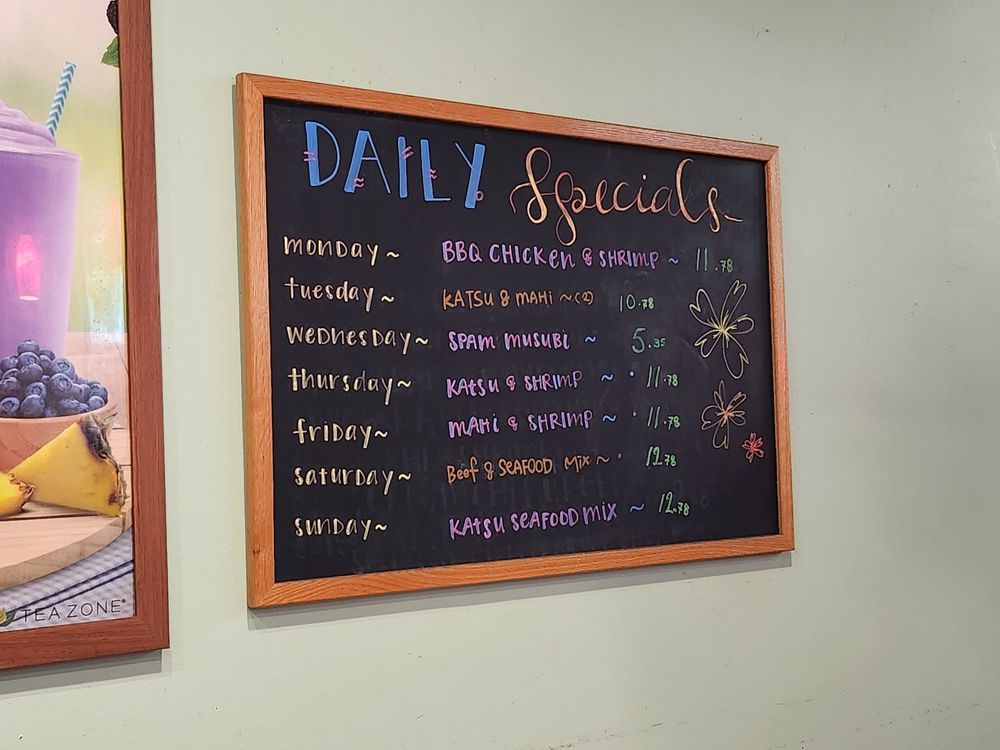 DAILY Specials
monday ~ BBQ CHICKEN & SHRIMP ~ 11.78
tuesday ~ KATSU & MAHI ~ (2) 10.78
wednesday ~ SPAM MUSUBI ~ 5.35
thursday ~ KATSU & SHRIMP ~ 11.78
friday ~ MAHI & SHRIMP ~ 11.78
saturday ~ Beef & SEAFOOD MIX ~ 12.78
sunday ~ KATSU SEAFOOD MIX ~ 12.78
TEA ZONE®